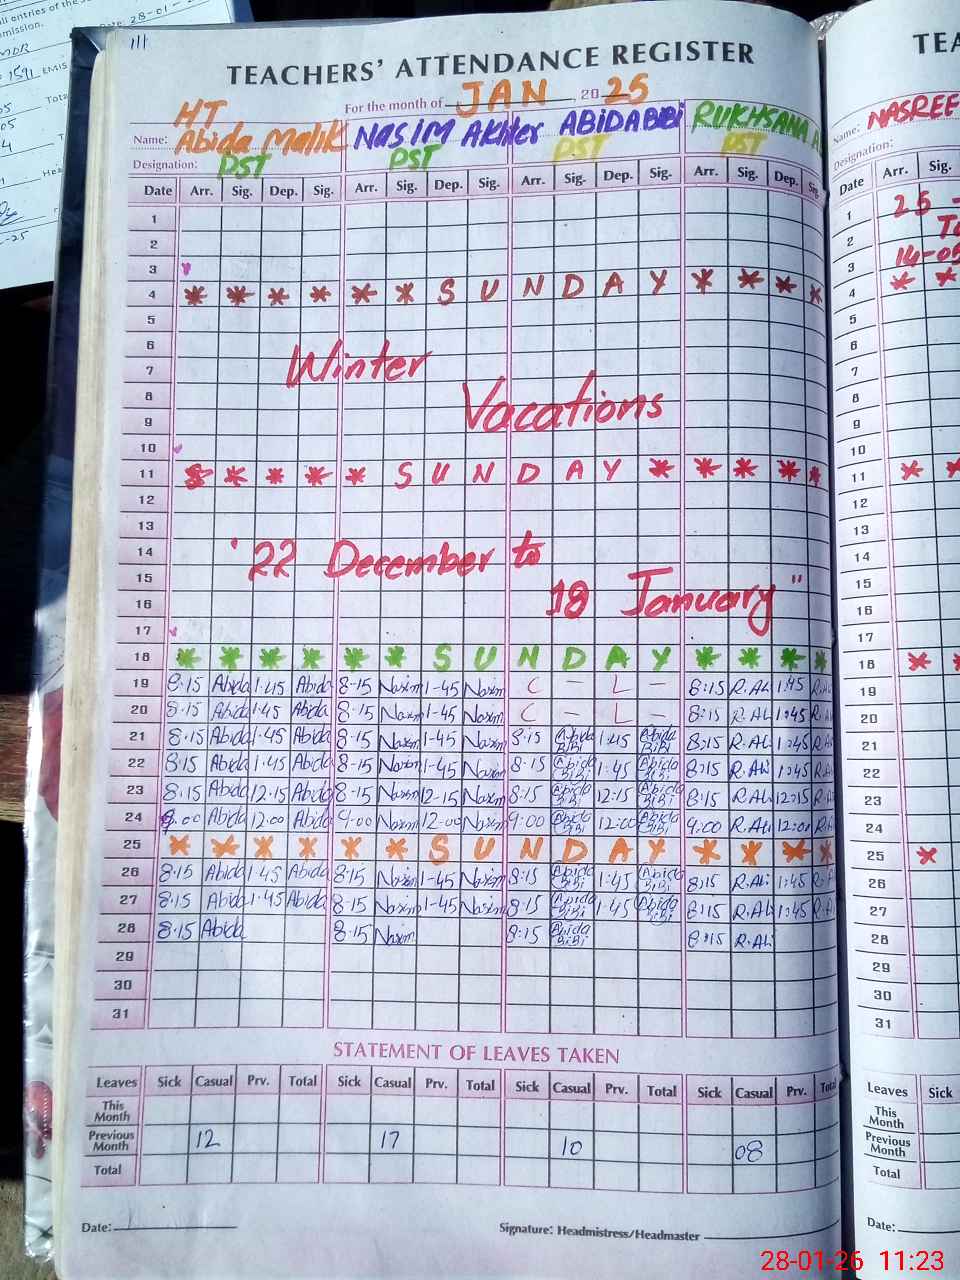 111
TEACHERS' ATTENDANCE REGISTER
For the month of JAN, 2025
HT
Name: Abida Malik NASIM Akhter ABIDA BIBI RUKHSANA
Designation: PST PST PST PST
Date Arr. Sig. Dep. Sig. Arr. Sig. Dep. Sig. Arr. Sig. Dep. Sig. Arr. Sig. Dep. Sig.
1
2
3
4 * * * * * * S U N D A Y * * * *
5
6
7 Winter
8 Vacations
9
10
11 * * * * * S U N D A Y * * * * *
12
13
14 '22 December to
15
16 18 January"
17
18 * * * * * * S U N D A Y * * * *
19 8:15 Abida 1:45 Abida 8-15 Nasim 1-45 Nasim C - L - 8:15 R.Ali 1:45 R.Ali
20 8:15 Abida 1:45 Abida 8-15 Nasim 1-45 Nasim C - L - 8:15 R.Ali 1:45 R.Ali
21 8:15 Abida 1:45 Abida 8-15 Nasim 1-45 Nasim 8:15 Abida BiBi 1:45 Abida BiBi 8:15 R.Ali 1:45 R.Ali
22 8:15 Abida 1:45 Abida 8-15 Nasim 1-45 Nasim 8:15 Abida BiBi 1:45 Abida BiBi 8:15 R.Ali 1:45 R.Ali
23 8:15 Abida 12:15 Abida 8-15 Nasim 12-15 Nasim 8:15 Abida BiBi 12:15 Abida BiBi 8:15 R.Ali 12:15 R.Ali
24 9:00 Abida 12:00 Abida 9-00 Nasim 12-00 Nasim 9:00 Abida BiBi 12:00 Abida BiBi 9:00 R.Ali 12:00 R.Ali
25 * * * * * * S U N D A Y * * * *
26 8:15 Abida 1:45 Abida 8-15 Nasim 1-45 Nasim 8:15 Abida BiBi 1:45 Abida BiBi 8:15 R.Ali 1:45 R.Ali
27 8:15 Abida 1:45 Abida 8-15 Nasim 1-45 Nasim 8:15 Abida BiBi 1:45 Abida BiBi 8:15 R.Ali 1:45 R.Ali
28 8:15 Abida 8-15 Nasim 8:15 Abida BiBi 8:15 R.Ali
29
30
31
STATEMENT OF LEAVES TAKEN
Leaves Sick Casual Prv. Total Sick Casual Prv. Total Sick Casual Prv. Total Sick Casual Prv. Total
This Month
Previous Month 12 17 10 08
Total
Date:
Signature: Headmistress/Headmaster
Name: NASREE
Designation:
Date Arr. Sig.
1 25 -
2
3 14-05
4 * *
5
6
7
8
9
10
11 * *
12
13
14
15
16
17
18 * *
19
20
21
22
23
24
25 *
26
27
28
29
30
31
Leaves Sick
This Month
Previous Month
Total
Date:
28-01-26 11:23